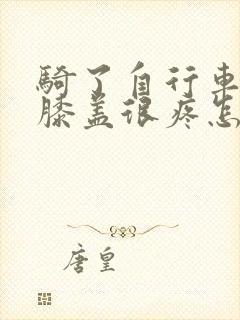 騎了自行車
膝盖很疼怎
唐皇